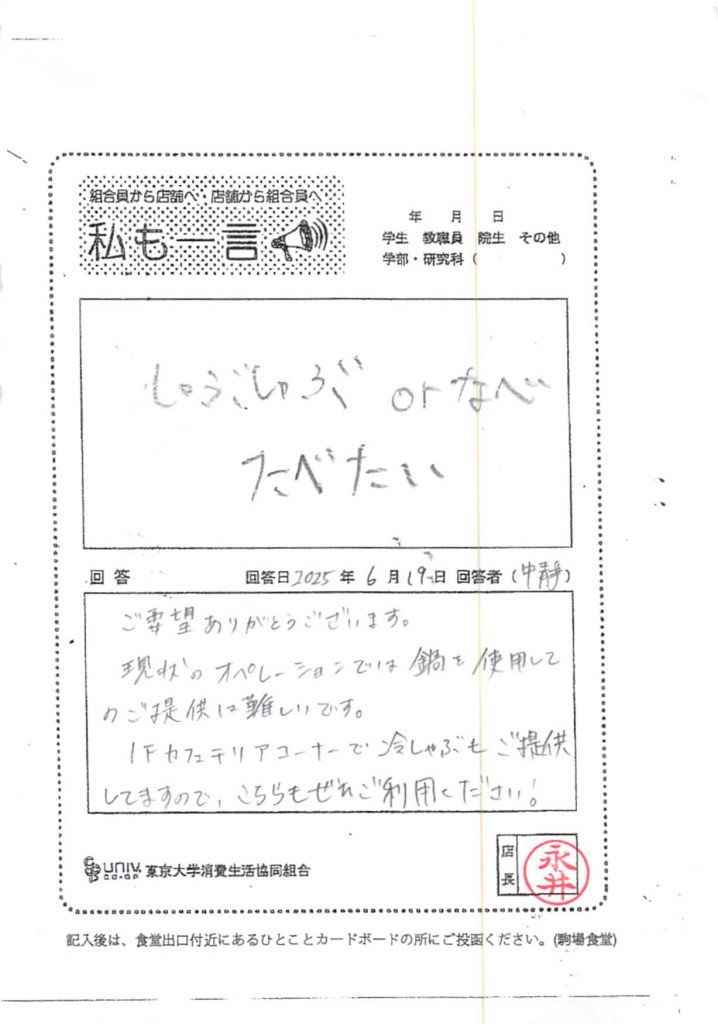 組合員から店舗へ・店舗から組合員へ
私も一言
年 月 日
学生 教職員 院生 その他
学部・研究科 ( )
しゃぶしゃぶ or なべ
たべたい
回答 回答日 2025 年 6 月 19 日 回答者 (中静)
ご要望ありがとうございます。
現状のオペレーションでは鍋を使用して
のご提供は難しいです。
1Fカフェテリアコーナーで冷しゃぶもご提供
してますので、こちらもぜひご利用ください!
UNIV. CO-OP 東京大学消費生活協同組合
店長 永井
記入後は、食堂出口付近にあるひとことカードボードの所にご投函ください。(駒場食堂)